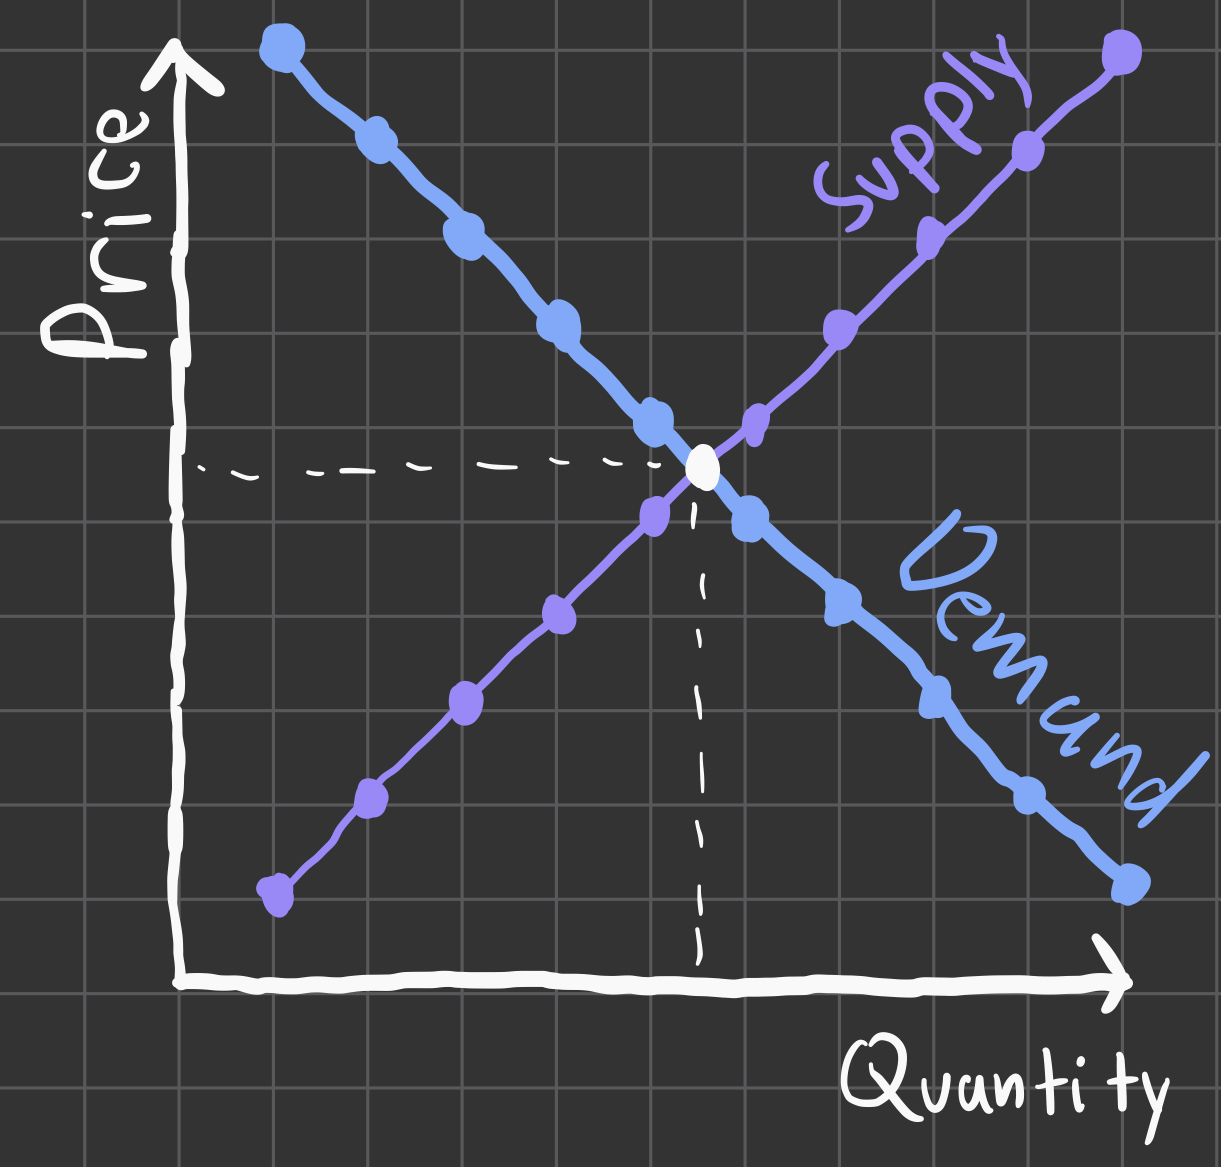 Price
Supply
Demand
Quantity